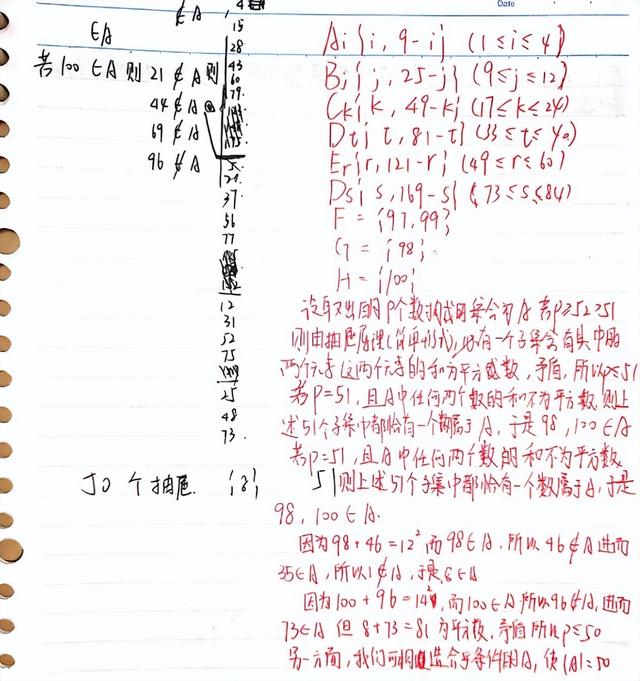 Date
∉A
∈A
若100∈A则 21∉A则
44∉A
69∉A
96∉A
15
28
43
60
79
5
20
37
56
77
12
31
52
75
25
48
73
50个抽屉 {8}
Ai{i, 9-i} (1≤i≤4)
Bj{j, 25-j} (9≤j≤12)
Ck{k, 49-k} (17≤k≤24)
Dt{t, 81-t} (33≤t≤40)
Er{r, 121-r} (49≤r≤60)
Ds{s, 169-s} (73≤s≤84)
F = {97, 99}
G = {98}
H = {100}
设取出的P个数构成的集合为A 若p≥52>51
则由抽屉原理(简单形式),必有一个子集含有其中的
两个元素 这两个元素的和为平方数,矛盾,所以p≤51
若P=51,且A中任何两个数的和不为平方数,则上
述51个子集中都恰有一个数属于A,于是98,100∈A
若p=51,且A中任何两个数的和不为平方数
51则上述51个子集中都恰有一个数属于A,于是
98,100∈A.
因为98+46=12²而98∈A.所以46∉A进而
35∈A,所以1∉A,于是8∈A
因为100+96=14²,而100∈A所以96∉A,进而
73∈A 但8+73=81为平方数,矛盾所以p≤50
另一方面,我们可构造合乎条件的A,使|A|=50